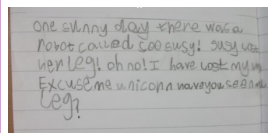 one sunny day there was a
Robot called SoeSusy! Susy lost
her leg! oh no! I have lost my
Excuse me unicorn have you seen
leg?